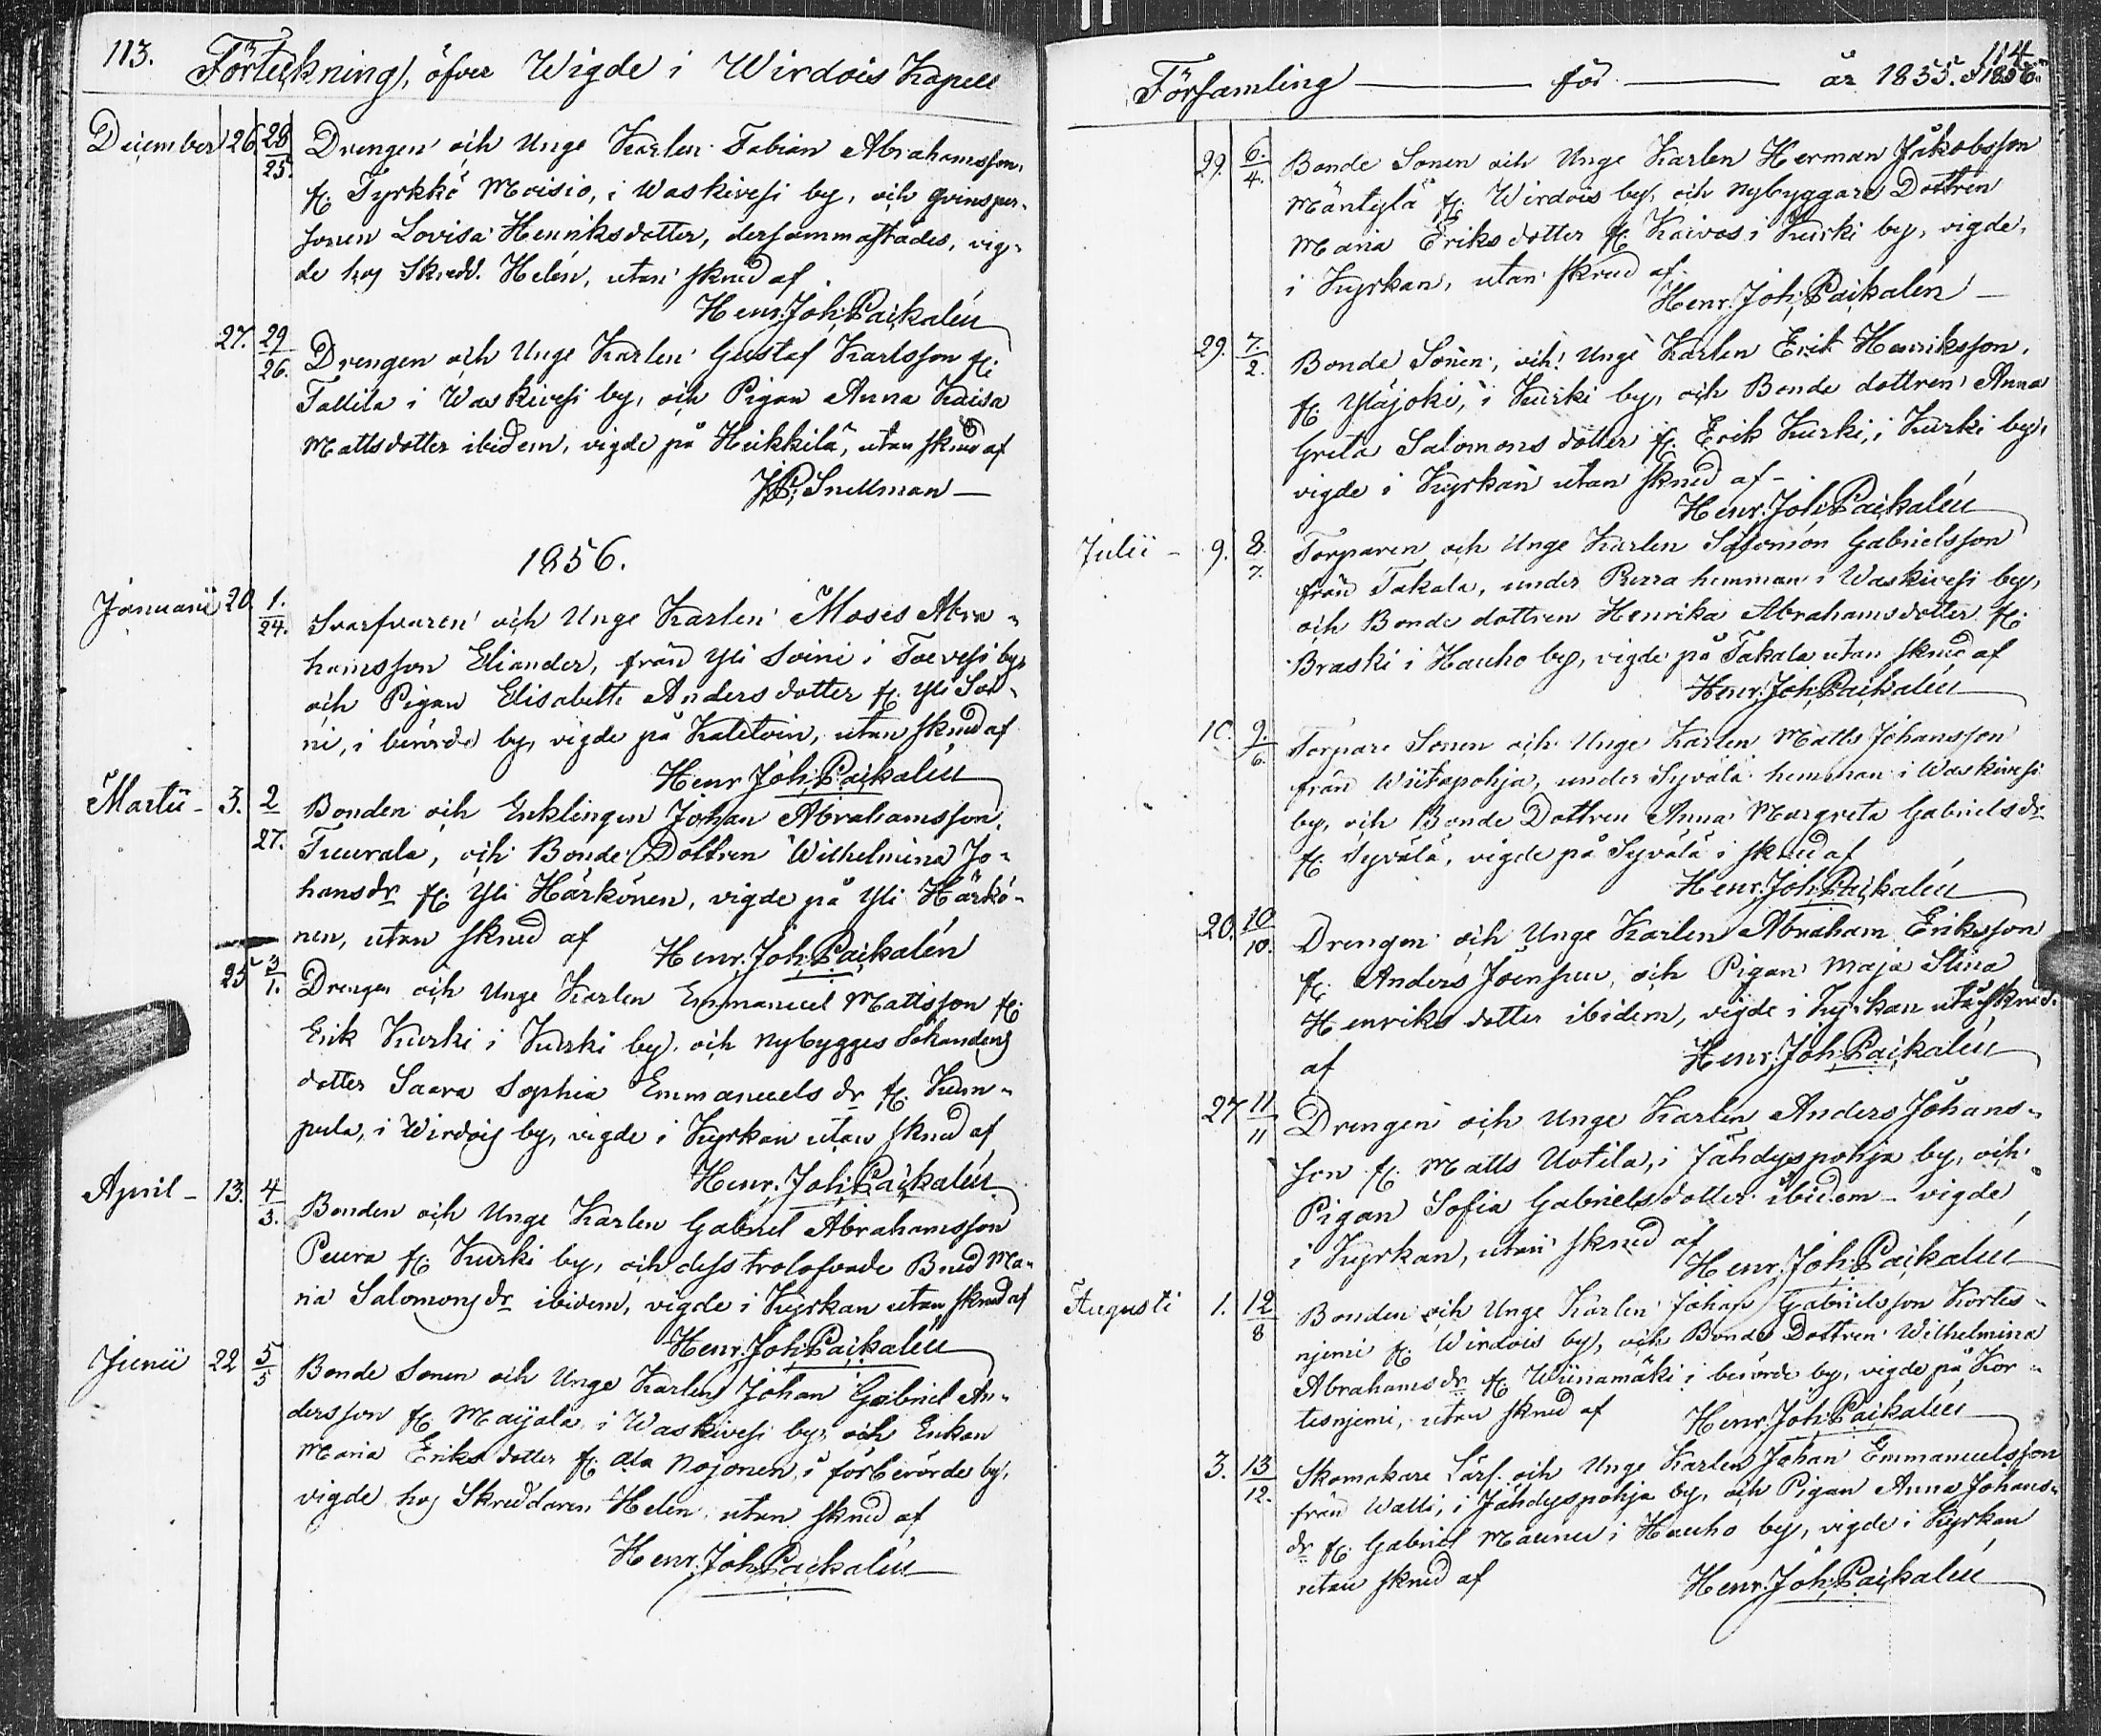 113. Förteckning, öfver Wigde i Wirdois Kapell
December 26. 28/25. Drengen och Unge Karlen Fabian Abrahamsson,
fr. Tyrkkö Moisio, i Waskivesi by, och qvinsper-
sonen Lovisa Henriksdotter, dersammastädes, vig-
de hos Skredd. Helén, utan skrud af
Henr. Joh. Paikalén
27. 29/26. Drengen och Unge Karlen Gustaf Karlsson fr.
Tallila i Waskivesi by, och Pigan Anna Kaisa
Mattsdotter ibidem, vigde på Heikkilä, utan skrud af
Snellman
1856.
Januarii 20 1./24. Svarfvaren och Unge Karlen Moses Abra-
hamsson Eliander, från Yli Soini i Toevesi by,
och Pigan Elisabeth Andersdotter fr. Yli Soi-
ni, i berörde by, vigde på Kaletvin, utan skrud af
Henr Joh. Paikalén
Martii - 3. 2/27. Bonden och Enklingen Johan Abrahamsson,
Tuurala, och Bonde Dottren Wilhelmina Jo-
hansdr fr. Yli Härkönen, vigde på Yli Härkö-
nen, utan skrud af Henr. Joh. Paikalén
25 3/1. Drengen och Unge Karlen Emmanuel Mattsson fr.
Erik Kurski i Kurski by, och Nybygges Sökandens
dotter Saara Sophia Emmanuels dr fr. Kum-
pula, i Wirdois by, vigde i Kyrkan utan skrud af
Henr. Joh. Paikalén
April - 13. 4/3. Bonden och Unge Karlen Gabriel Abrahamsson
Peura fr. Kurski by, och dess trolofvade Brud Ma-
ria Salomons dr ibidem, vigde i Kyrkan utan skrud af
Henr. Joh. Paikalén
Junii 22 5/5 Bonde Sonen och Unge Karlen Johan Gabriel An-
dersson fr. Maijala i Waskivesi by, och Enkan
Maria Eriksdotter fr. Ala Nojonen, i förberörde by,
vigde hos Skreddaren Helen utan skrud af
Henr. Joh. Paikalén
114.
Församling för år 1855. & 1856.
29. 6./4. Bonde Sonen och Unge Karlen Herman Jakobsson
Mäntylä fr. Wirdois by, och Nybyggare Dottren
Maria Eriksdotter fr. Kaivos i Kurki by, vigde,
i Kyrkan, utan skrud af
Henr. Joh. Paikalén
29. 7./2. Bonde Sonen, och Unge Karlen Erik Henriksson,
fr. Yläjoki, i Kurki by, och Bonde dottren Anna
Greta Salomonsdotter fr. Erik Kurki, i Kurki by,
vigde i Kyrkan utan skrud af -
Henr. Joh. Paikalén
Julii - 9. 8./7. Torparen och Unge Karlen Salomon Gabrielsson
från Takala, under Purra hemman i Waskivesi by,
och Bonde dottren Henrika Abrahamsdotter fr.
Braski i Hauho by, vigde på Takala utan skrud af
Henr. Joh. Paikalén
10. 9./6. Torpare Sonen och Unge Karlen Matts Johansson
från Wiitapohja, under Syvälä hemman i Waskivesi
by, och Bonde Dottren Anna Margreta Gabriels dr
fr. Syvälä, vigde på Syvälä i skrud af
Henr. Joh. Paikalén
20. 10/10. Drengen och Unge Karlen Abraham Eriksson
fr. Anders Joensuu, och Pigan Maja Stina
Henriksdotter ibidem, vigde i Kyrkan utan skrud.
af Henr. Joh. Paikalén
27 11/11 Drengen och Unge Karlen Anders Johans-
son fr. Matts Uotila, i Jähdyspohja by, och
Pigan Sofia Gabrielsdotter ibidem - vigde
i Kyrkan, utan skrud af
Henr. Joh. Paikalén
Augusti 1. 12/8 Bonden och Unge Karlen Johan Gabrielsson Kortes-
njemi fr. Wirdois by, och Bonde Dottren Wilhelmina
Abrahams dr fr. Wiinamäki i berörde by, vigde på Kor-
tesnjemi, utan skrud af Henr. Joh. Paikalén
3. 13/12. Skomakare Lärl. och Unge Karlen Johan Emmanuelsson
från Watti, i Jähdyspohja by, och Pigan Anna Johans-
dr fr. Gabriel Maunu i Hauho by, vigde i Kyrkan
utan skrud af Henr. Joh. Paikalén